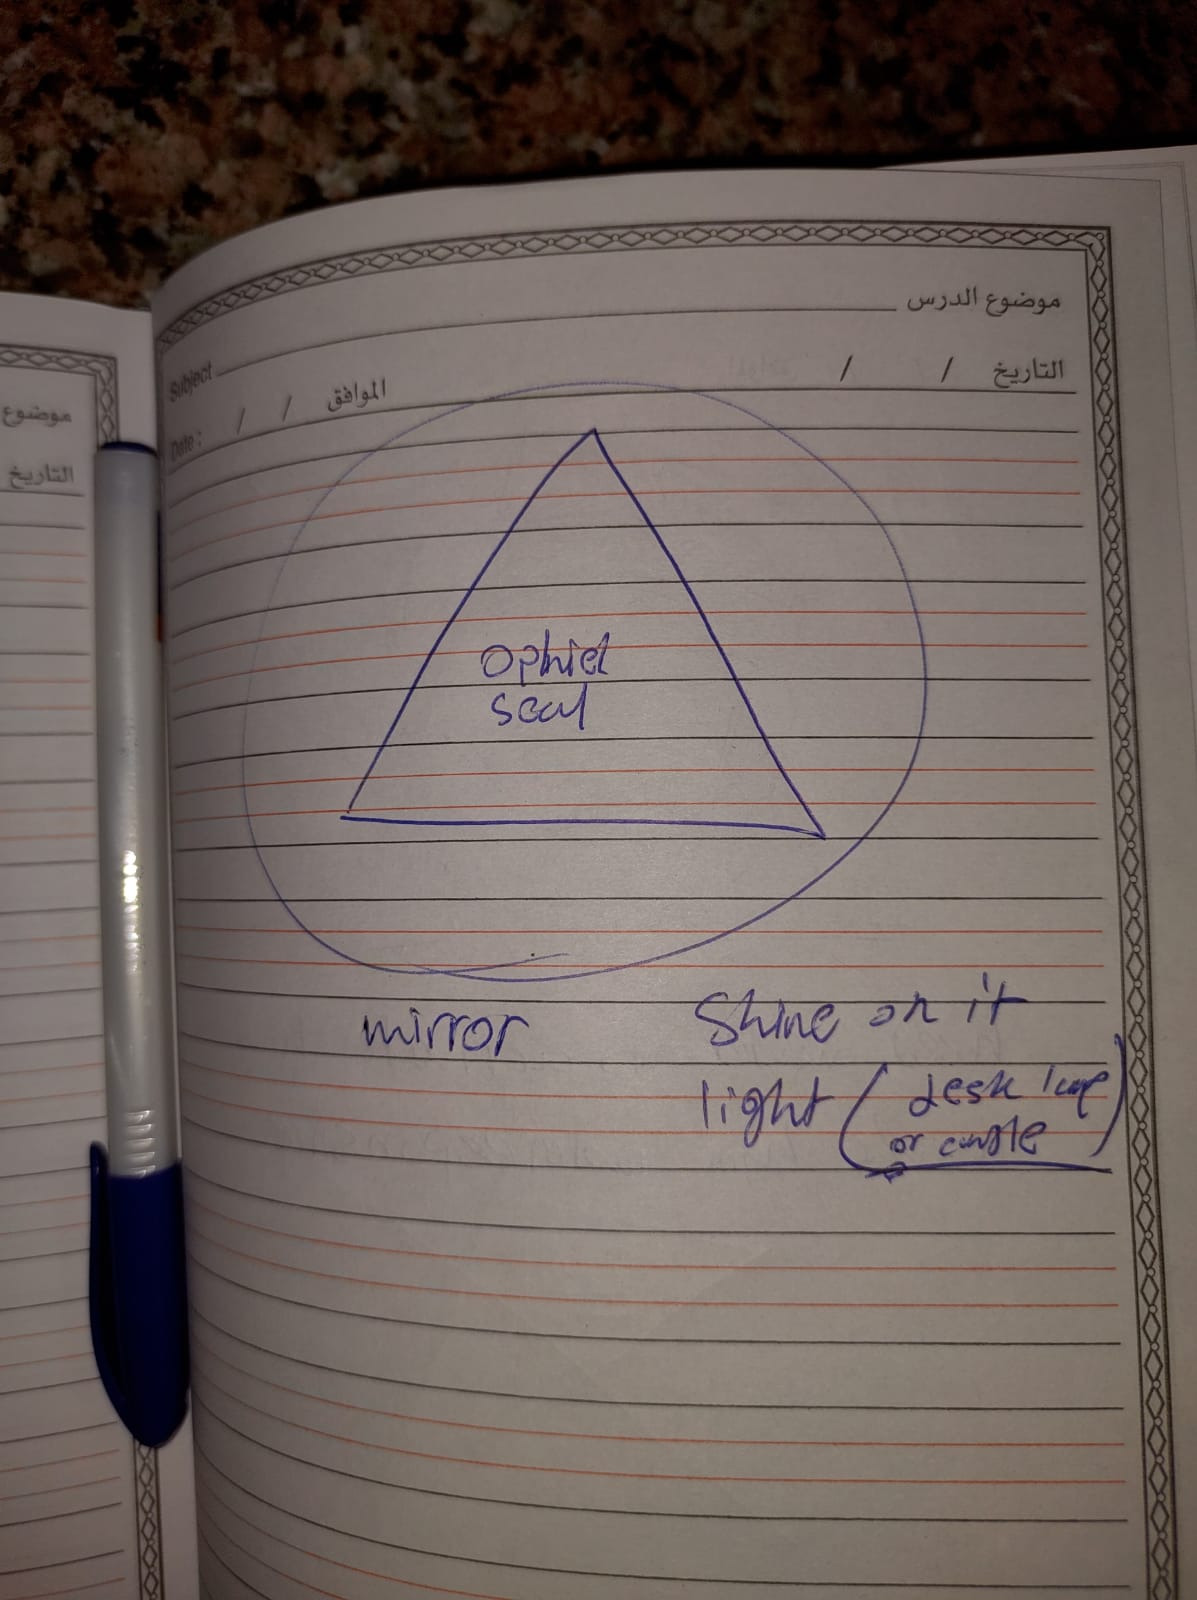 موضوع الدرس
Subject
التاريخ / /
الموافق / /
Date :
موضوع
التاريخ
ophiel
seal
mirror
Shine on it
light (desk lamp
or candle)